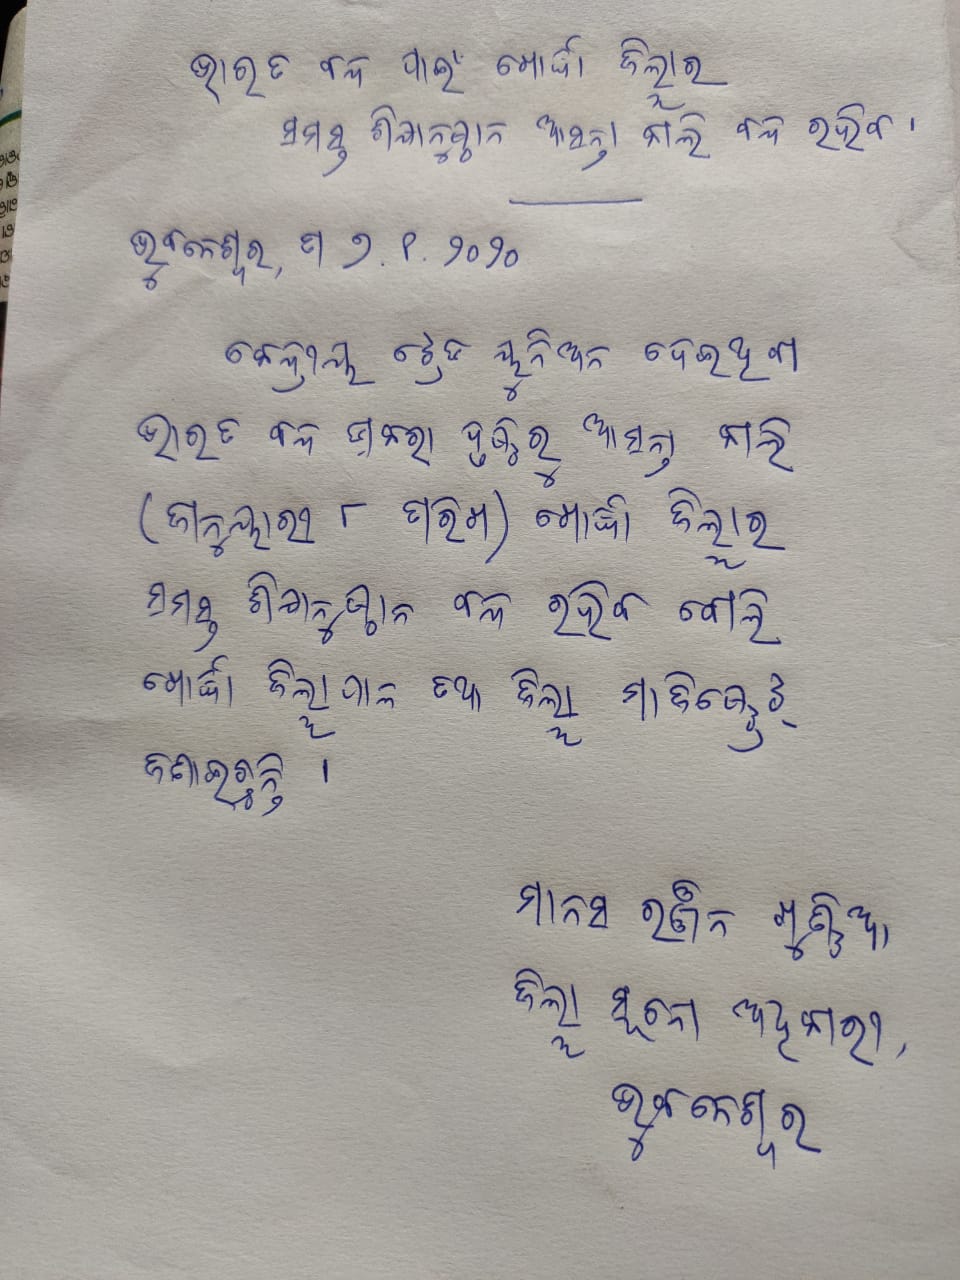 ଭାରତ ବନ୍ଦ ପାଇଁ ଖୋର୍ଦ୍ଧା ଜିଲ୍ଲାର
ସମସ୍ତ ଶିକ୍ଷାନୁଷ୍ଠାନ ଆସନ୍ତା କାଲି ବନ୍ଦ ରହିବ ।
ଭୁବନେଶ୍ୱର, ତା ୭.୧.୨୦୨୦
କେନ୍ଦ୍ରୀୟ ଟ୍ରେଡ ୟୁନିଅନ ଦେଇଥିବା
ଭାରତ ବନ୍ଦ ଡାକରା ଦୃଷ୍ଟିରୁ ଆସନ୍ତା କାଲି
(ଜାନୁଆରୀ ୮ ତାରିଖ) ଖୋର୍ଦ୍ଧା ଜିଲ୍ଲାର
ସମସ୍ତ ଶିକ୍ଷାନୁଷ୍ଠାନ ବନ୍ଦ ରହିବ ବୋଲି
ଖୋର୍ଦ୍ଧା ଜିଲ୍ଲାପାଳ ତଥା ଜିଲ୍ଲା ମାଜିଷ୍ଟ୍ରେଟ୍
ଜଣାଇଛନ୍ତି ।
ମାନସ ରଞ୍ଜନ ଖୁଣ୍ଟିଆ
ଜିଲ୍ଲା ସୂଚନା ଅଧିକାରୀ,
ଭୁବନେଶ୍ୱର